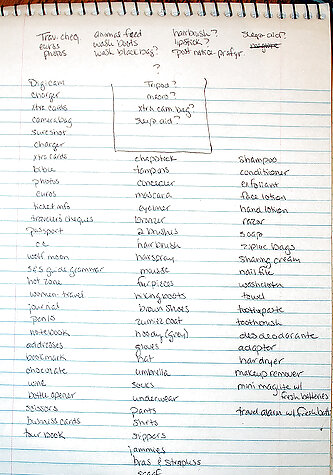 Trav. cheq.
euros
photos
animal feed
wash boots
wash black bag?
hairbrush?
lipstick?
post notice-prfsr.
sleep aid?
?
Tripod?
macro?
xtra cam. bag?
sleep aid?
Digicam
charger
xtra cards
camera bag
sureshot
charger
xtra cards
bible
photos
euros
ticket info
travelers cheques
passport
cc
wolf moon
hot zone
women travel
journal
pen 10
notebook
addresses
bookmark
chocolate
wine
bottle opener
scissors
business cards
tour book
chapstick
tampons
concealer
mascara
eyeliner
bronzer
2 brushes
hairbrush
hairspray
mousse
fur pieces
hiking boots
brown shoes
zumiez coat
hoody (grey)
gloves
hat
umbrella
socks
underwear
pants
shirts
slippers
jammies
bras & strapless
scarf
shampoo
conditioner
exfoliant
face lotion
hand lotion
razor
soap
ziploc bags
shaving cream
nail file
washcloth
towel
toothpaste
toothbrush
deodorante
adapter
hairdryer
makeup remover
mini maglite w/
fresh batteries
travel alarm w/ fresh batt